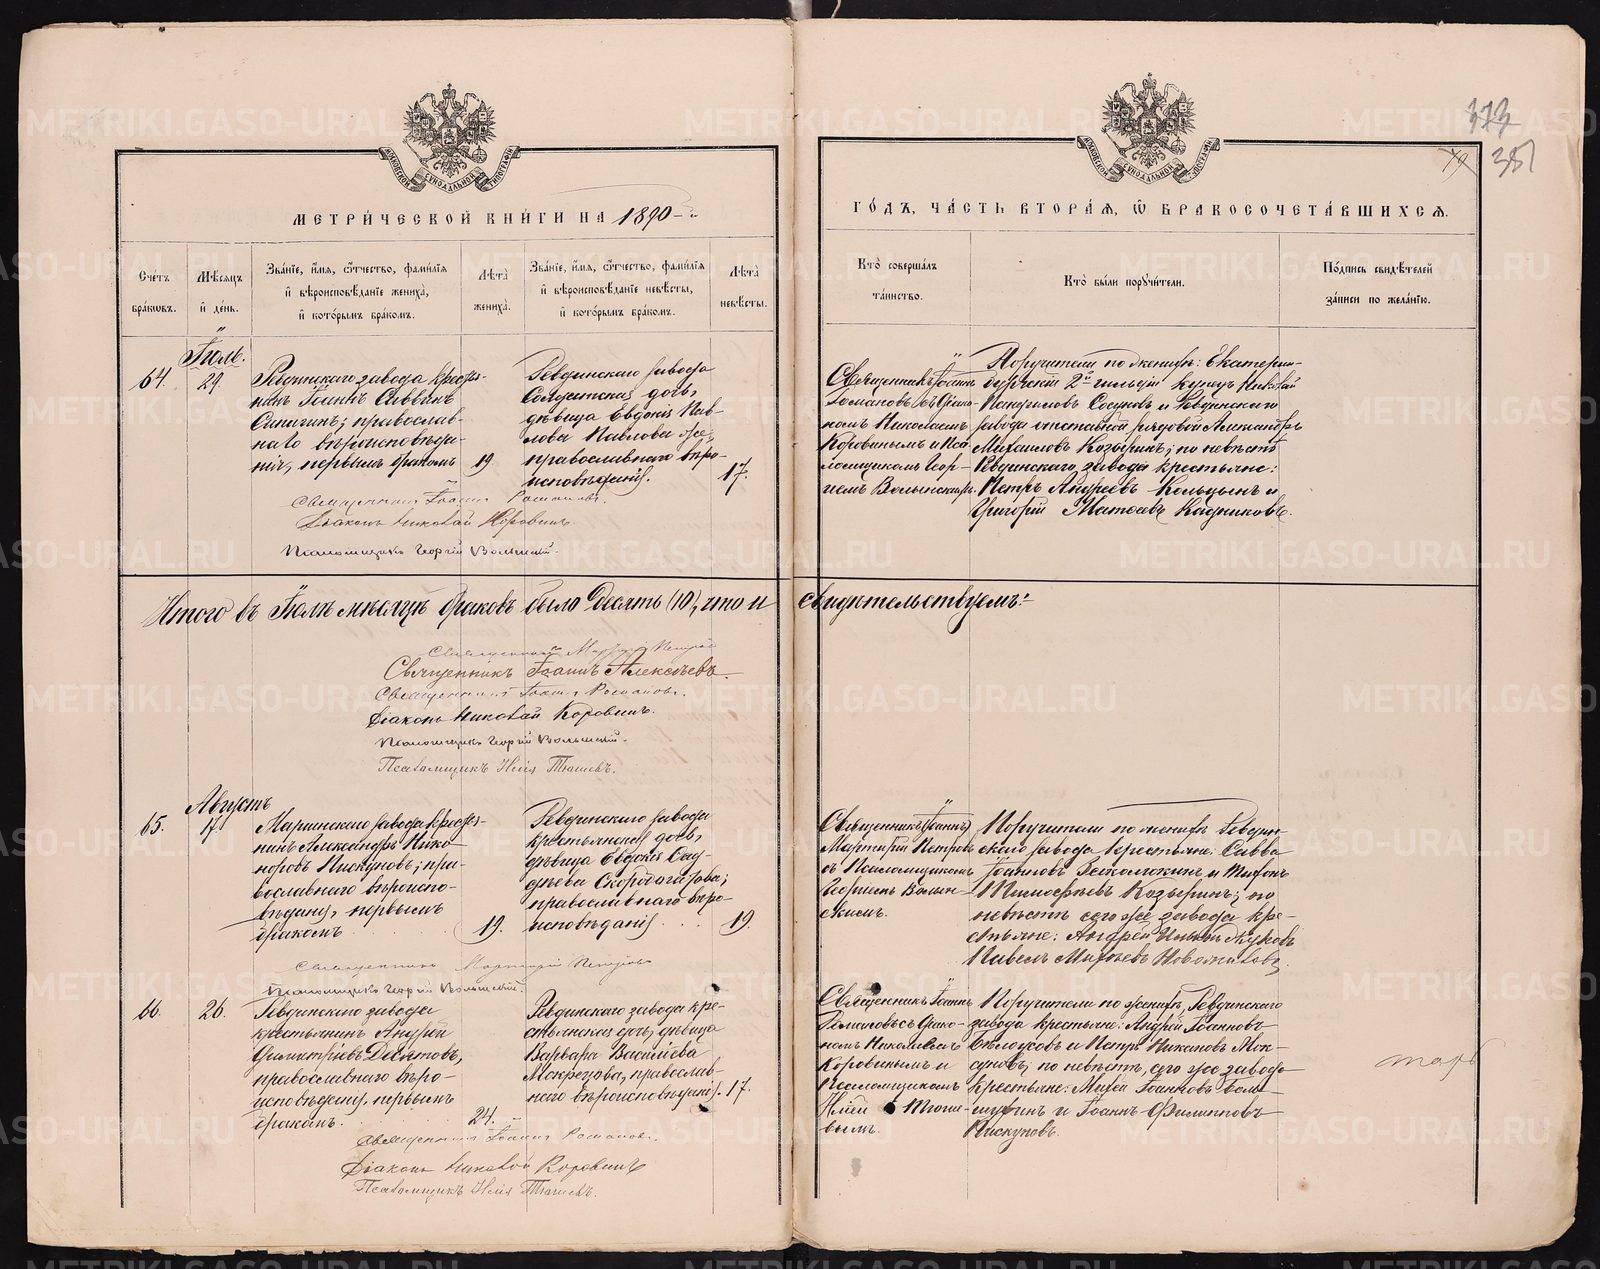 МЕТРИЧЕСКОЙ КНИГИ НА 1890-й
ГОДЪ, ЧАСТЬ ВТОРАЯ, Ѿ БРАКОСОЧЕТАВШИХСЯ.
373
351
Счетъ браковъ.
Мѣсяцъ и день.
Званіе, имя, отчество, фамилія и вѣроисповѣданіе жениха, и которымъ бракомъ.
Лѣта жениха.
Званіе, имя, отчество, фамилія и вѣроисповѣданіе невѣсты, и которымъ бракомъ.
Лѣта невѣсты.
Кто совершалъ таинство.
Кто были поручители.
Подпись свидѣтелей записи по желанію.
Іюль.
64.
29.
Ревдинскаго завода кресть-
нинъ Іоаннъ Саввинъ
православ-
наго вѣроисповѣда-
нія, первымъ бракомъ
19
Ревдинскаго завода
Солдатская дочь,
дѣвица Евдокія Пав-
лова Павлова же,
православнаго вѣро-
исповѣданія.
17.
Священникъ Іоаннъ
Романовъ съ діако-
номъ Николаемъ
Коровинымъ и Пса-
ломщикомъ Геор-
гіемъ Волынскимъ.
Поручители по женихѣ: Екатерин-
бургскій 2й гильдіи купецъ Николай
Сосуновъ и Ревдинскаго
завода отставной рядовой Александръ
Михаиловъ Козыринъ; по невѣстѣ
Ревдинскаго завода крестьяне:
Петръ Андреевъ Кольцынъ и
Григорій Матвѣевъ Кадниковъ.
Священникъ Іоаннъ Романовъ.
Діаконъ Николай Коровинъ.
Псаломщикъ Георгій Волынскій.
Итого въ Іюлѣ мѣсяцѣ браковъ было десять (10), что и свидѣтельствуемъ:
Священникъ Мартирій Петровъ
Священникъ Іоаннъ Алексѣевъ.
Священникъ Іоаннъ Романовъ.
Діаконъ Николай Коровинъ.
Псаломщикъ Георгій Волынскій.
Псаломщикъ Илія Тюшевъ.
Августъ
65.
17
Маріинскаго завода кресть-
нинъ Александръ Нико-
норовъ Пискуновъ; пра-
вославнаго вѣроиспо-
вѣданія, первымъ
бракомъ
19.
Ревдинскаго завода
крестьянская дочь,
дѣвица Евдокія
Скоробогатова;
православнаго вѣро-
исповѣданія
19.
Священникъ
Мартирій Петровъ
съ Псаломщикомъ
Георгіемъ Волын-
скимъ.
Поручители по женихѣ Ревдин-
скаго завода крестьяне: Савва
Іоанновъ и
Тимофѣевъ Козыринъ; по
невѣстѣ сего же завода кре-
стьяне: Андрей
Павелъ
Священникъ Мартирій Петровъ
Псаломщикъ Георгій Волынскій.
66.
26.
Ревдинскаго завода
крестьянинъ Андрей
Димитріевъ Десятовъ,
православнаго вѣро-
исповѣданія, первымъ
бракомъ.
24.
Ревдинскаго завода кре-
стьянская дочь, дѣвица
Варвара Василіева
Мокрецова, православ-
наго вѣроисповѣданія.
17.
Священникъ Іоаннъ
Романовъ съ діако-
номъ Николаемъ
Коровинымъ и
Псаломщикомъ
Иліей Тюше-
вымъ.
Поручители по женихѣ, Ревдинскаго
завода крестьяне: Андрей Іоанновъ
Бѣлоусовъ и Петръ Никановъ
по невѣстѣ, сего же завода
крестьяне: Іоанновъ
и Іоаннъ Филипповъ
Пискуновъ.
Священникъ Іоаннъ Романовъ.
Діаконъ Николай Коровинъ
Псаломщикъ Илія Тюшевъ.
METRIKI.GASO-URAL.RU